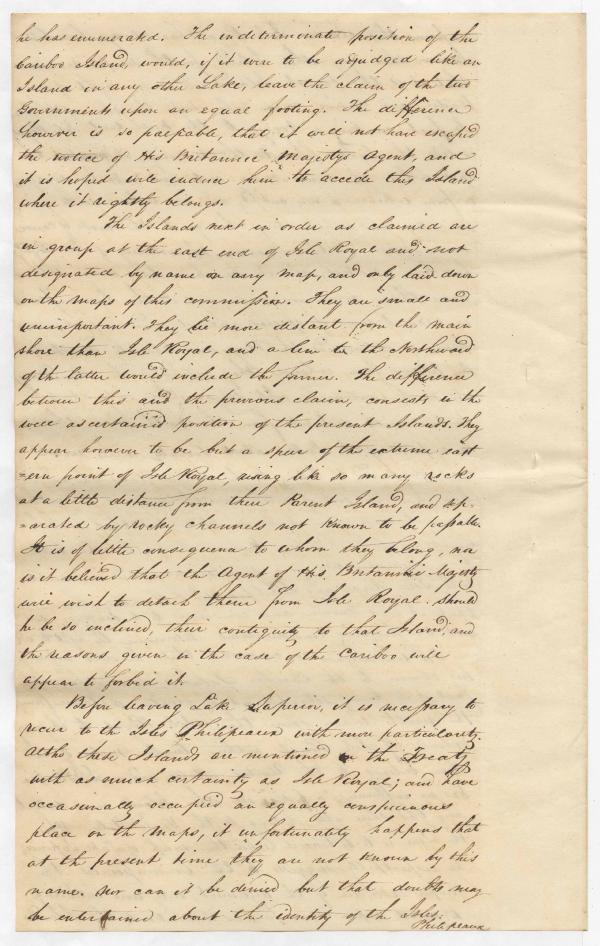 he has enumerated. The indeterminate position of the
Cariboo Island, would, if it were to be adjudged like an
Island in any other Lake, leave the claim of the two
Governments upon an equal footing. The difference
however is so palpable, that it will not have escaped
the notice of His Britannic Majestys Agent, and
it is hoped will induce him to accede this Island
where it rightly belongs.
The Islands next in order as claimed are
in group at the east end of Isle Royal and not
designated by name on any map, and only laid down
on the maps of this commission. They are small and
unimportant. They lie more distant from the main
shore than Isle Royal, and a line to the Northward
of the latter would include the former. The difference
between this and the previous claim, consists in the
well ascertained position of the present Islands. They
appear however to be but a spur of the extreme east
=ern point of Isle Royal, rising like so many rocks
at a little distance from their Parent Island, and sep-
=arated by rocky channels not known to be passable.
It is of little consequence to whom they belong, nor
is it believed that the Agent of His Britannic Majesty
will wish to detach them from Isle Royal. should
he be so inclined, their contiguity to that Island, and
the reasons given in the case of the Cariboo will
appear to forbid it.
Before leaving Lake Superior, it is necessary to
recur to the Isles Philipeaux with more particularity.
Altho these Islands are mentioned in the Treaty
with as much certainty as Isle Royal; and have
occasionally occupied an equally conspicuous
place on the maps, it unfortunately happens that
at the present time they are not known by this
name. nor can it be denied but that doubts may
be entertained about the identity of the Isles:
Philipeaux